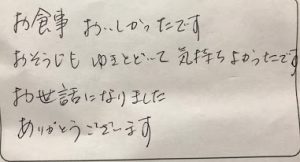 お食事 おいしかったです
おそうじも ゆきとどいて 気持ちよかったです
お世話になりました
ありがとうございます